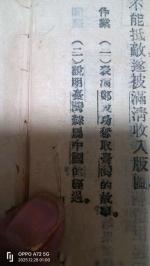 不能抵敵遂被滿清收入版圖
作業 (一)表演鄭成功奪取臺灣的故事。
(二)說明臺灣隸屬中國的經過。
OPPO A72 5G
2025.12.28 01:00